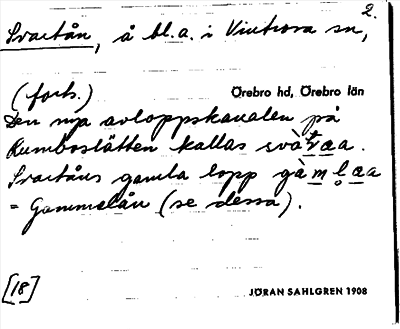 2.
Svartån, å bl.a. i Vintrosa sn,
(forts.) Örebro hd, Örebro län
Den nya avloppskanalen på
Rumboslätten kallas svàʈaa.
Svartåns gamla lopp gàml̥aa
= Gammelån (se dessa).
[18] JÖRAN SAHLGREN 1908